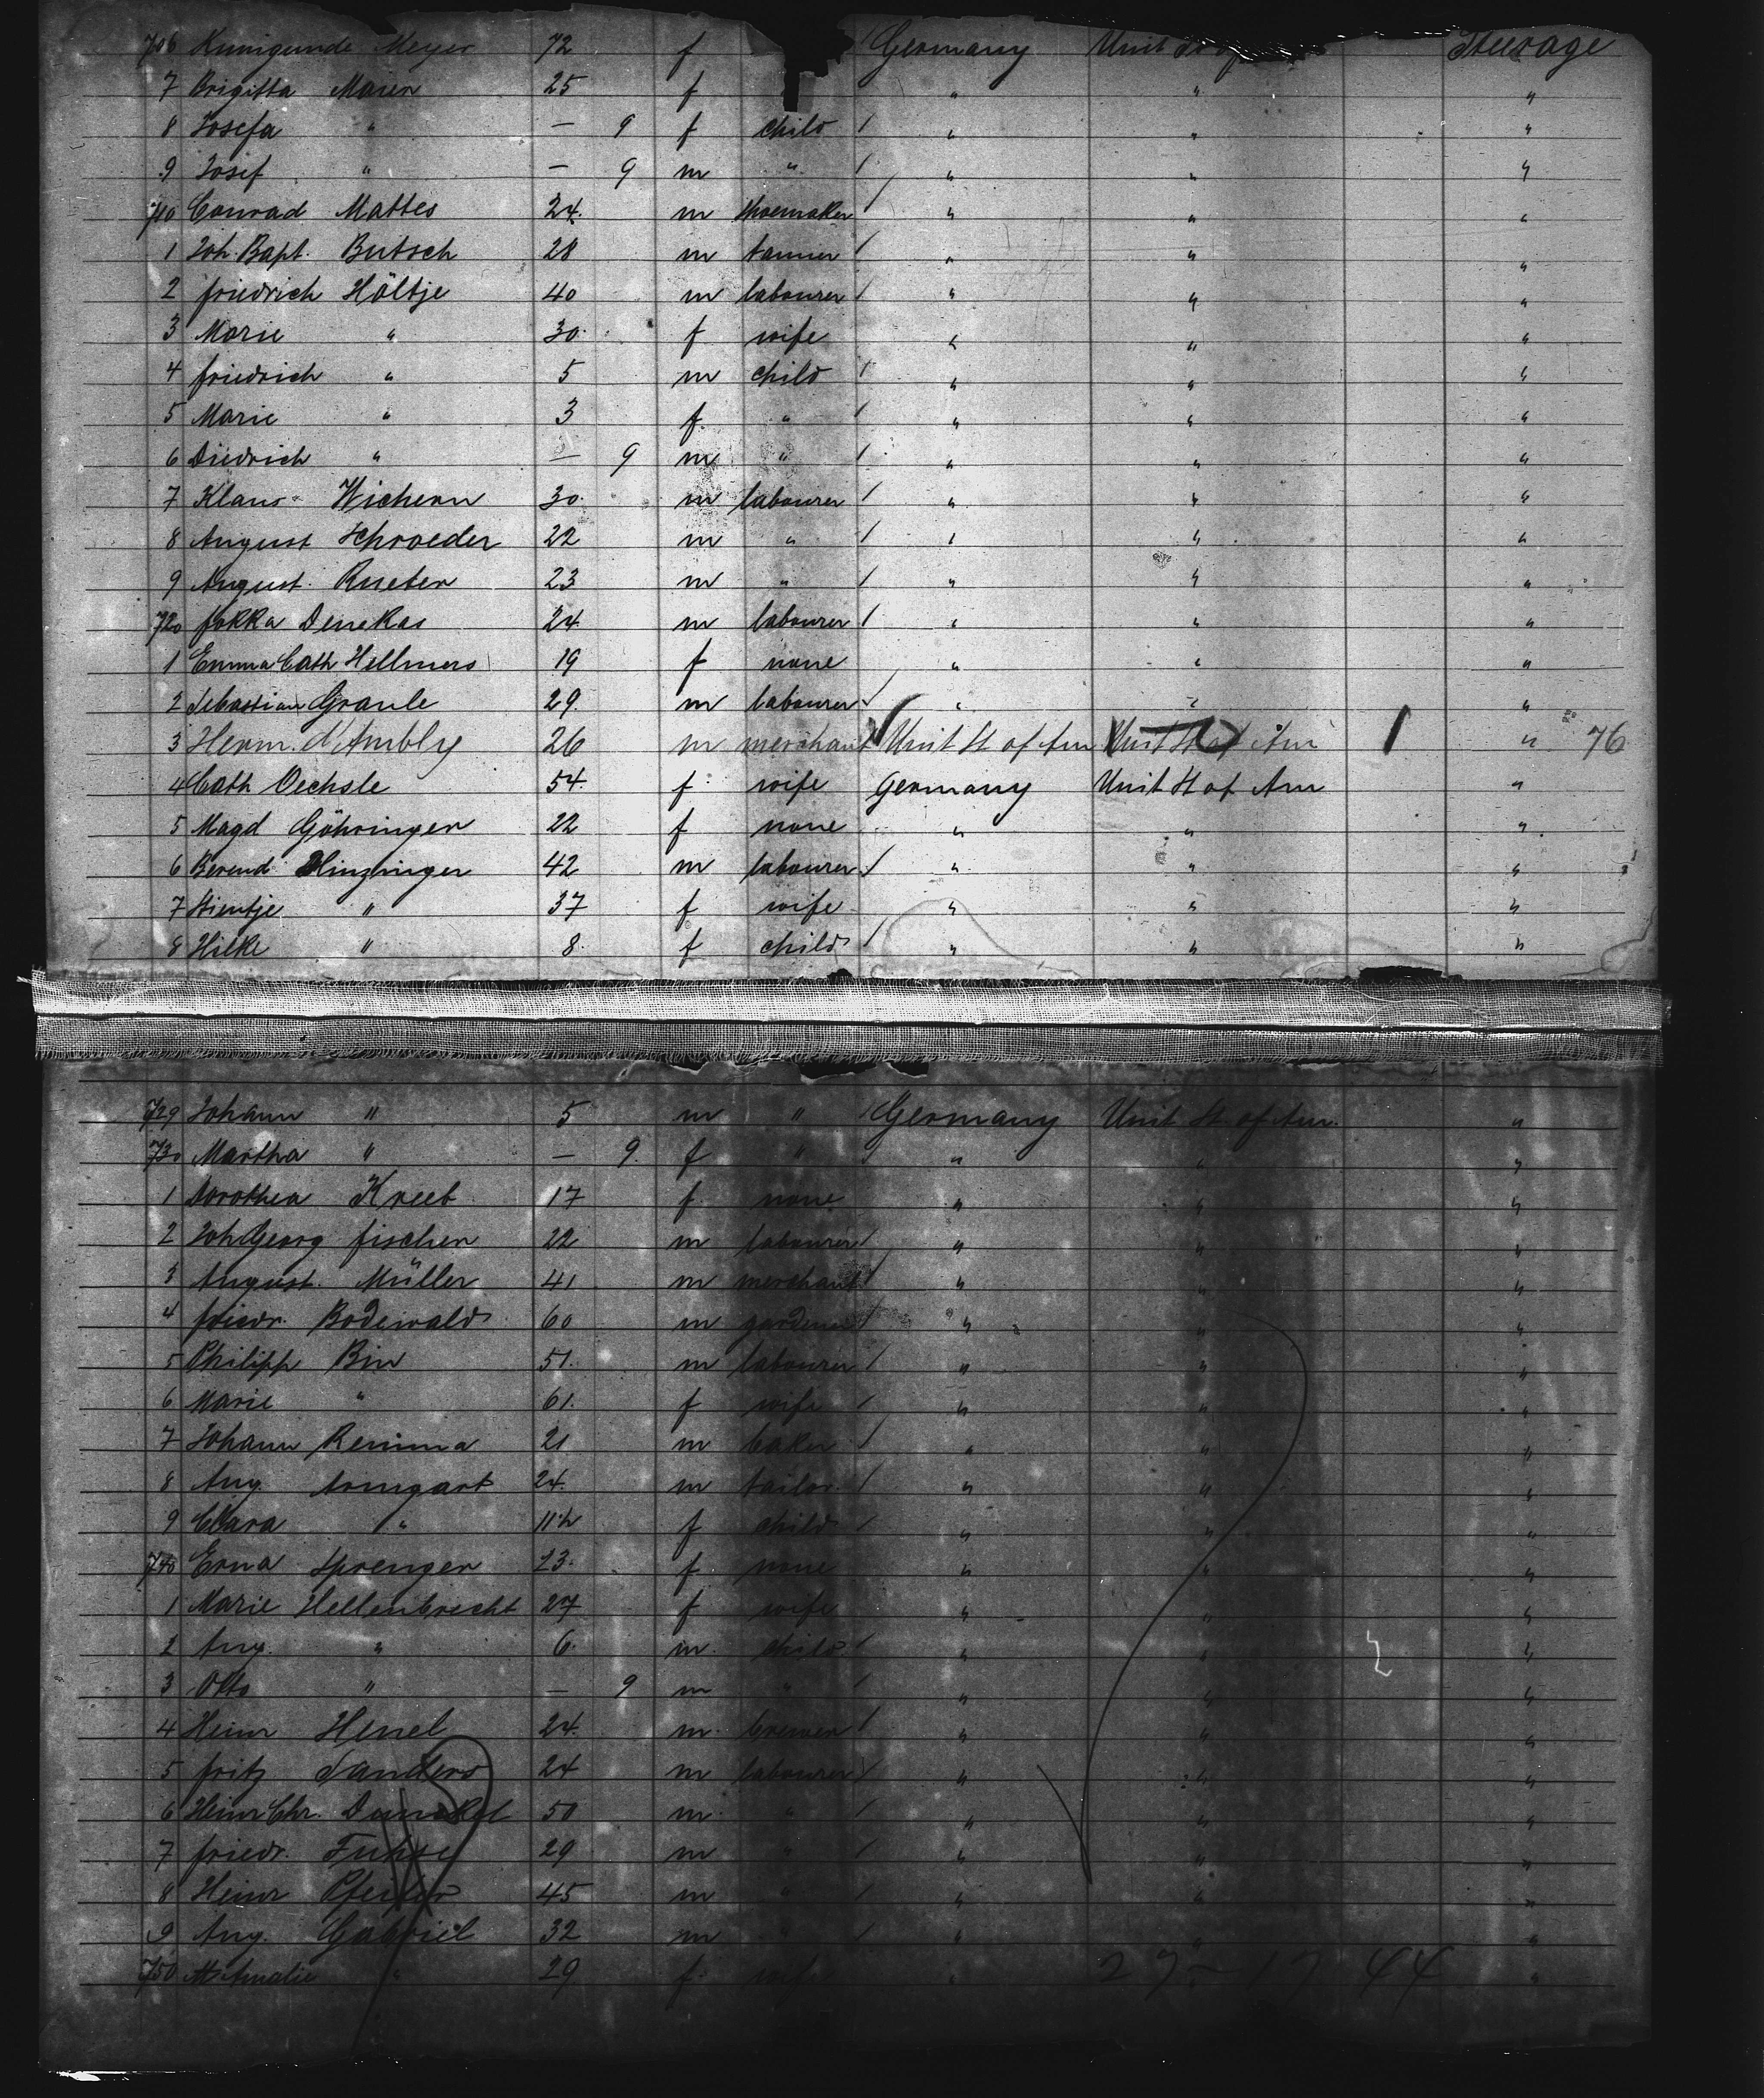 706 Kunigunde Meyer 72 f Germany Unit St of Steerage
7 Brigitta Maier 25 f " " "
8 Josefa " — 9 f child / " " "
9 Josef " — 9 m " / " " "
710 Conrad Mattes 24. m shoemaker / " " "
1 Joh. Bapt. Butsch 28 m tanner / " " "
2 Friedrich Höltje 40 m labourer / " " "
3 Marie " 30. f wife " " "
4 Friedrich " 5 m child / " " "
5 Marie " 3 f. " / " " "
6 Diedrich " — 9 m " / " " "
7 Klaus Wichern 30. m labourer / " " "
8 August Schroeder 22 m " / " " "
9 August. Rueter 23 m " / " " "
720 Fokka Denekas 24 m labourer / " " "
1 Emma Cath Hellmers 19 f none " " "
2 Sebastian Graule 29. m labourer / " " "
3 Herm. d'Ambly 26 m merchant Unit St of Am Unit St of Am / " 76
4 Cath Oechsle 54. f. wife Germany Unit St of Am "
5 Magd Göhringer 22 f none " " "
6 Berend Hinzinger 42 m labourer / " " "
7 Stientje " 37 f wife " " "
8 Hilke " 8. f child / " " "
729 Johann " 5 m " Germany Unit St. of Am. "
730 Martha " — 9. f " / " " "
1 Dorothea Kreeb 17 f. none " " "
2 Joh Georg Fischer 22 m labourer / " " "
3 August. Müller 41 m merchant / " " "
4 Friedr. Bodewald 60 m gardener / " " "
5 Philipp Bin 51. m labourer / " " "
6 Marie " 61. f wife / " " "
7 Johann Remma 21 m baker / " " "
8 Aug. Armgart 24. m tailor. / " " "
9 Clara " 11½ f child / " " "
740 Erna Sprenger 23. f none " " "
1 Marie Hellenbrecht 27 f wife " " "
2 Aug. " 6. m. child / " " "
3 Otto " — 9 m " / " " "
4 Heinr Henel 24. m. brewer / " " "
5 Fritz Sanders 24 m labourer / " " "
6 Heinr Chr. Dunekel 50 m. " / " " "
7 Friedr. Fuhse 29 m " / " " "
8 Heinr Pfeifer 45 m " / " " "
9 Aug. Gabriel 32 m " / " " "
750 Amalie " 29 f. wife " 27 - 17 44 "